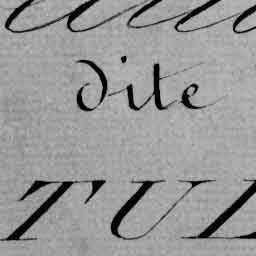 dite
TUL